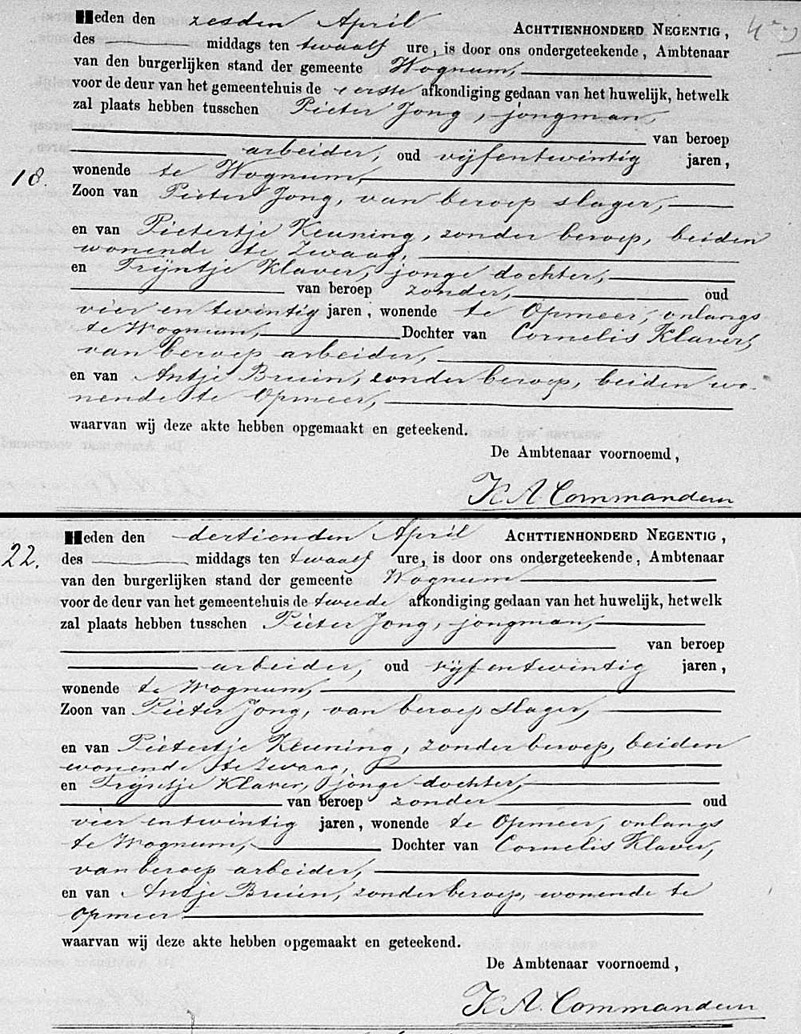 Heden den zesden April ACHTTIENHONDERD NEGENTIG,
des middags ten twaalf ure, is door ons ondergeteekende, Ambtenaar
van den burgerlijken stand der gemeente Wognum,
voor de deur van het gemeentehuis de eerste afkondiging gedaan van het huwelijk, hetwelk
zal plaats hebben tusschen Pieter Jong, jongman,
van beroep
arbeider, oud vijfentwintig jaren,
18.
wonende te Wognum,
Zoon van Pieter Jong, van beroep slager,
en van Pietertje Keuning, zonder beroep, beiden
wonende te Zwaag,
en Trijntje Klaver, jonge dochter,
van beroep zonder, oud
vier en twintig jaren, wonende te Opmeer, onlangs
te Wognum, Dochter van Cornelis Klaver,
van beroep arbeider,
en van Antje Bruin, zonder beroep, beiden wo-
nende te Opmeer,
waarvan wij deze akte hebben opgemaakt en geteekend.
De Ambtenaar voornoemd,
K A Commandeur
Heden den dertienden April ACHTTIENHONDERD NEGENTIG,
22.
des middags ten twaalf ure, is door ons ondergeteekende, Ambtenaar
van den burgerlijken stand der gemeente Wognum
voor de deur van het gemeentehuis de tweede afkondiging gedaan van het huwelijk, hetwelk
zal plaats hebben tusschen Pieter Jong, jongman,
van beroep
arbeider, oud vijfentwintig jaren,
wonende te Wognum,
Zoon van Pieter Jong, van beroep slager,
en van Pietertje Keuning, zonder beroep, beiden
wonende te Zwaag,
en Trijntje Klaver, jonge dochter,
van beroep zonder oud
vier en twintig jaren, wonende te Opmeer, onlangs
te Wognum, Dochter van Cornelis Klaver,
van beroep arbeider,
en van Antje Bruin, zonder beroep, wonende te
Opmeer
waarvan wij deze akte hebben opgemaakt en geteekend.
De Ambtenaar voornoemd,
K A. Commandeur